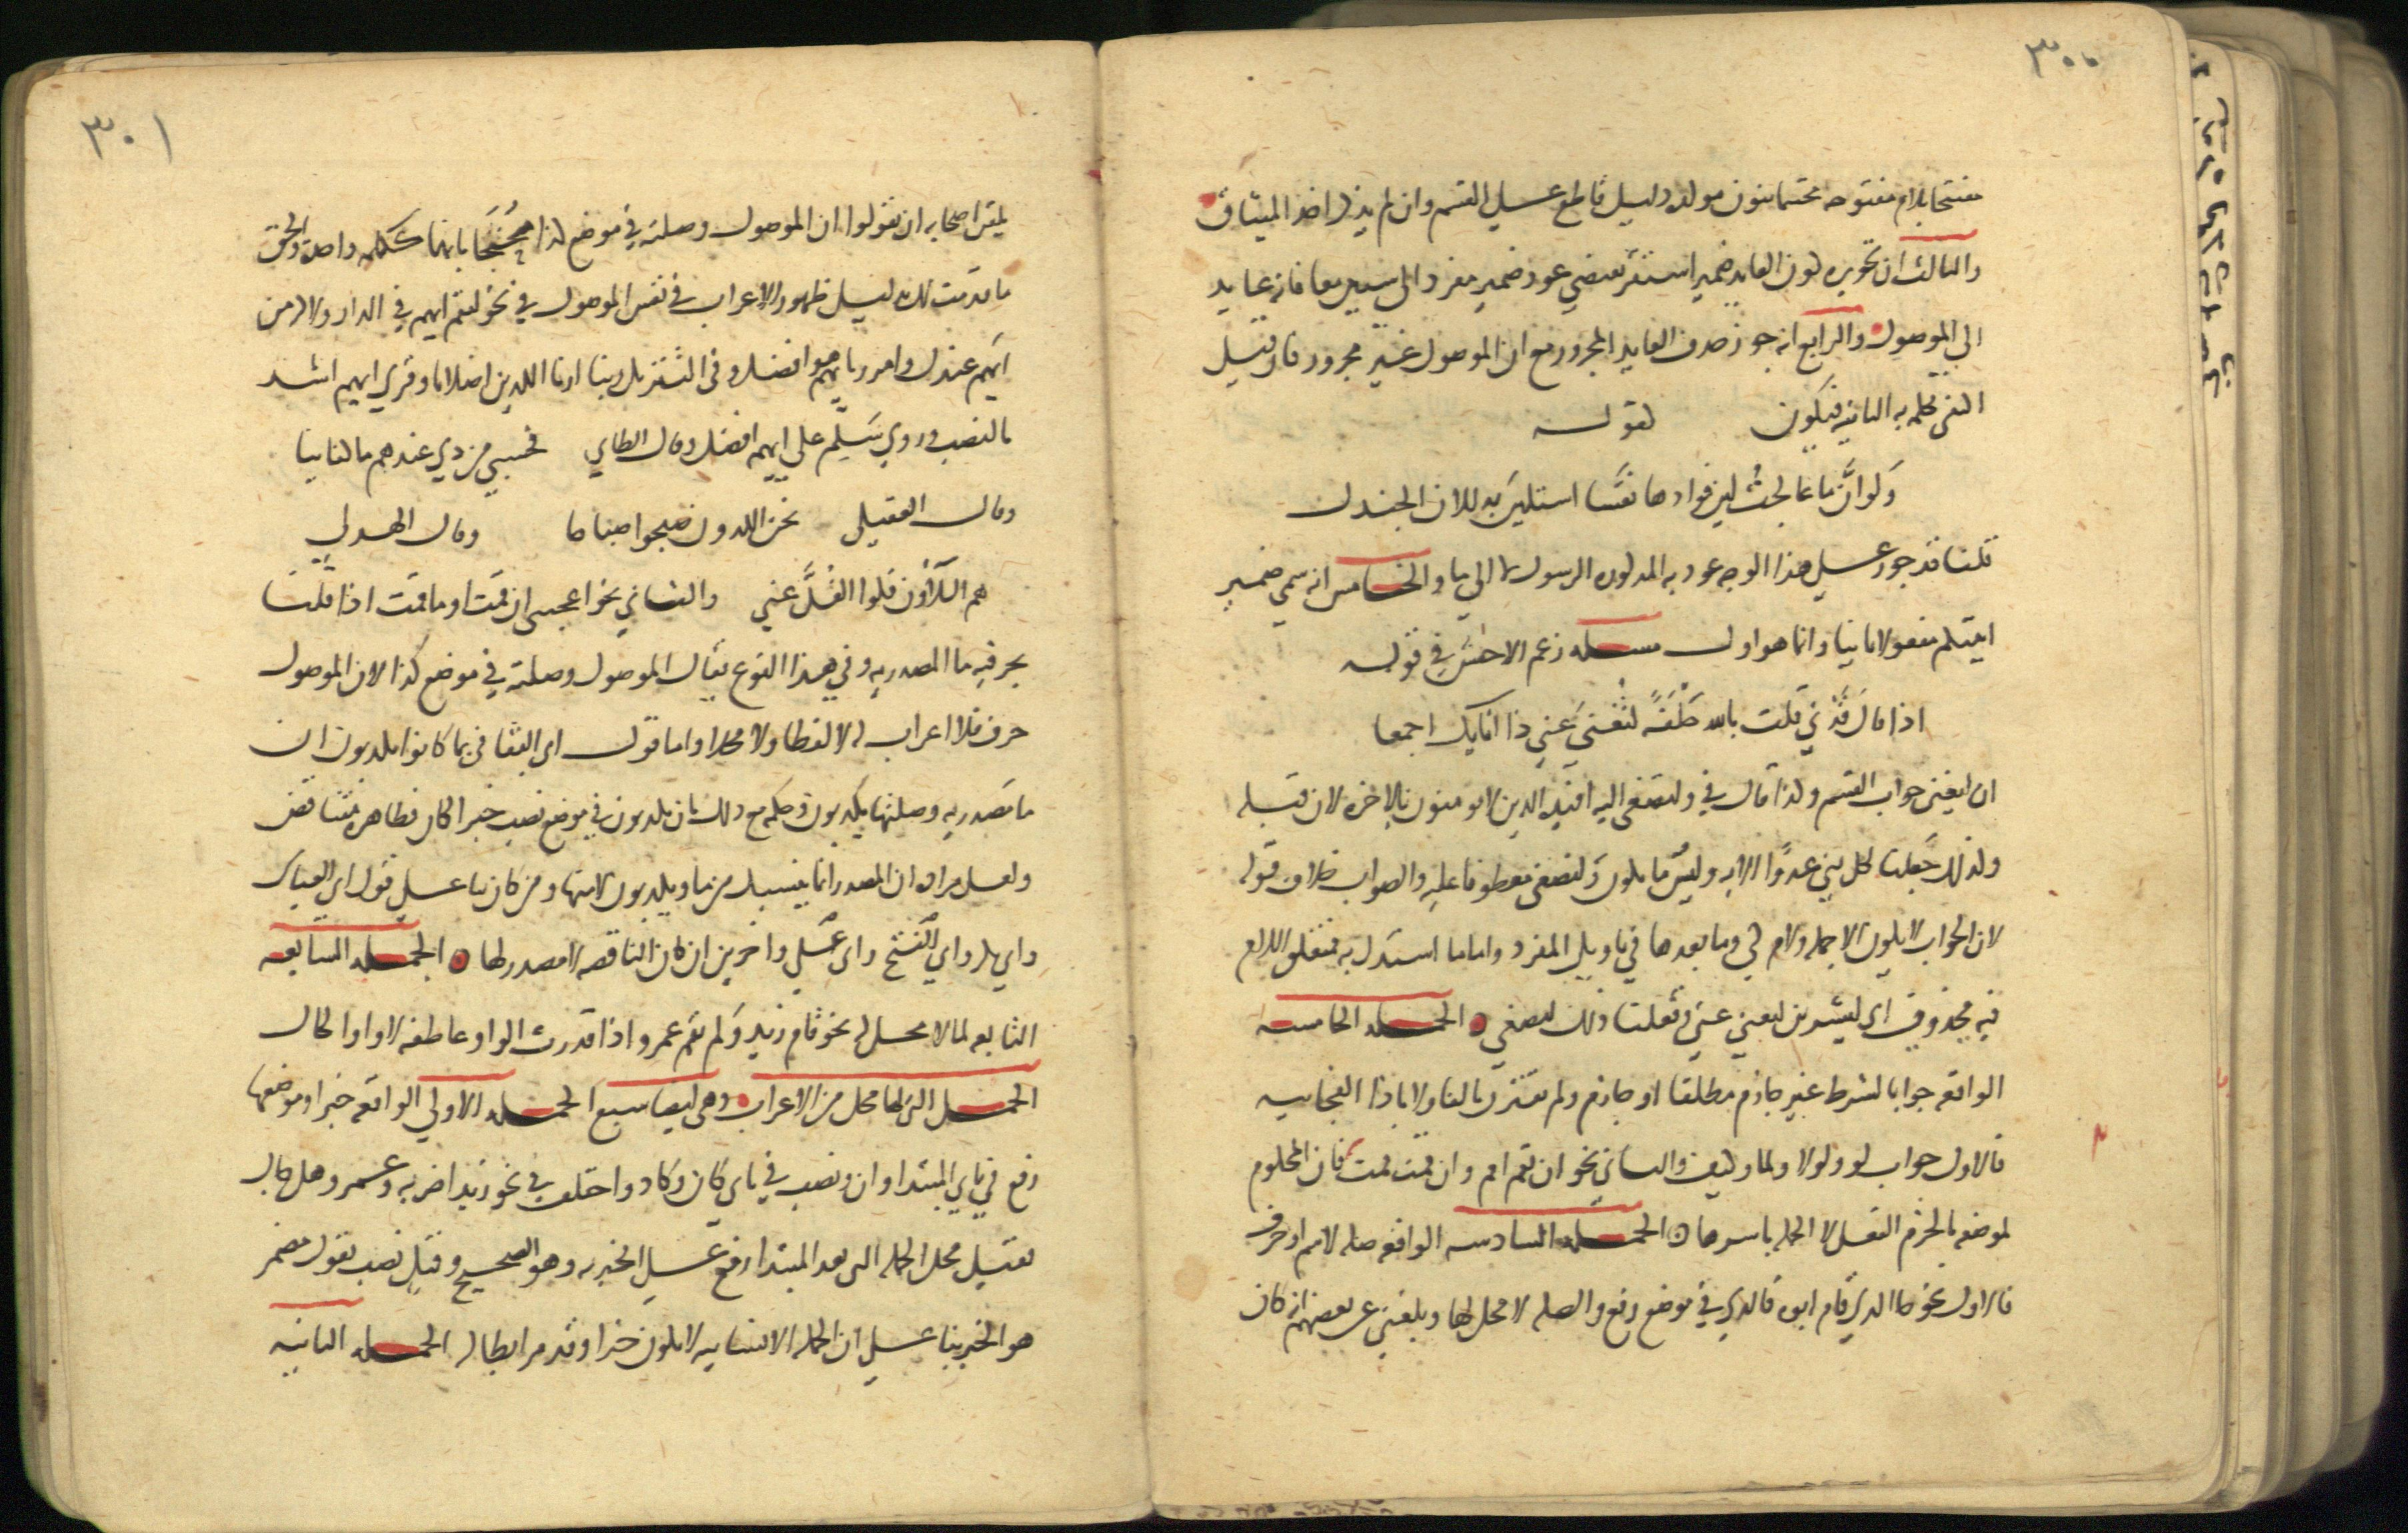 ٣٠٠
مفتتحا بلام مفتوحه مختتما بنون موكده دليل قاطع على القسم وان لم يذكر اخذ الميثاق
والثالث ان تجويزه كون العايد ضمير استقر يقتضي عود ضمير مفرد الى شيين معا فانه عايد
الى الموصول والرابع انه جوز حذف العايد المجرور مع ان الموصول غير مجرور فان قيل
اكتفى بكلمه به الثانيه فيكون كقوله
ولو ان ما عالجت لين فوادها فقسا استلين به للان الجندل
قلنا قد جوز على هذا الوجه عود به المذكوره الى الرسول لا الى ما والخامس انه سمى ضمير
اتيتكم مفعولا ثانيا وانما هو اول مسله زعم الاخفش في قوله
اذا قال قدني قلت بالله حلفة لتغني عني ذا انايك اجمعا
ان لتغني جواب القسم وكذا قال في ولتصغى اليه افئدة الذين لا يومنون بالاخره لان قبله
وكذلك جعلنا لكل نبي عدوا الايه وليس ما يكون ولتصغى معطوفا عليه والصواب خلاف قوله
لان الجواب لا يكون الا جمله ولام كي وما بعدها في تاويل المفرد واما ما استدل به فمتعلق اللام
فيه محذوف اي لتشربن لتغني عني وفعلنا ذلك لتصغى الجمله الخامسه
الواقعه جوابا لشرط غير جازم مطلقا او جازم ولم تقترن بالفا ولا باذا الفجاييه
فالاول جواب لو ولولا ولما وكيف والثاني نحو ان تقم اقم وان قمت قمت فان المحكوم
لموضعه بالجزم الفعل لا الجمله باسرها الجمله السادسه الواقعه صله لاسم او حرف
فالاول نحو جا الذي قام ابوه فالذي في موضع رفع والصله لا محل لها وبلغني عن بعضهم انه كان
٣٠١
يلقن اصحابه ان يقولوا ان الموصول وصلته في موضع كذا محتجا بانهما ككلمه واحده والحق
ما قدمت لك بدليل ظهور الاعراب في نفس الموصول في نحو ليقم ايهم في الدار ولالزمن
ايهم عندك وامرر بايهم هو افضل وفي التنزيل ربنا ارنا اللذين اضلانا وقري ايهم اشد
بالنصب وروي سلم على ايهم افضل وقال الطاي فحسبي من ذي عندهم ما كفانيا
وقال العقيلي نحن اللذون صبحوا صباحا وقال الهذلي
هم اللاؤون فكوا الغل عني والثاني نحو اعجبني ان قمت او ما قمت اذا قلنا
بحرفيه ما المصدريه وفي هذا النوع يقال الموصول وصلته في موضع كذا لان الموصول
حرف فلا اعراب له لا لفظا ولا محلا واما قول ابي البقا في بما كانوا يكذبون ان
ما مصدريه وصلتها يكذبون وحكمه مع ذلك بان يكذبون في موضع نصب خبرا لكان فظاهره متناقض
ولعل مراده ان المصدر انما ينسبك من ما ويكذبون لا منها ومن كان بنا على قول ابي العباس
وابي بكر وابي الفتح وابي علي واخرين ان كان الناقصه لا مصدر لها الجمله السابعه
التابعه لما لا محل له نحو قام زيد ولم يقم عمرو اذا قدرت الواو عاطفه لا واو الحال
الجمل التي لها محل من الاعراب وهي ايضا سبع الجمله الاولى الواقعه خبرا وموضعها
رفع في بابي المبتدا وان ونصب في بابي كان وكاد واختلف في نحو زيد اضربه وعمرو هل جاك
فقيل محل الجمله التي بعد المبتدا رفع على الخبريه وهو الصحيح وقيل نصب بقول مضمر
هو الخبر بنا على ان الجمله الانشاييه لا تكون خبرا وقد مر ابطاله الجمله الثانيه